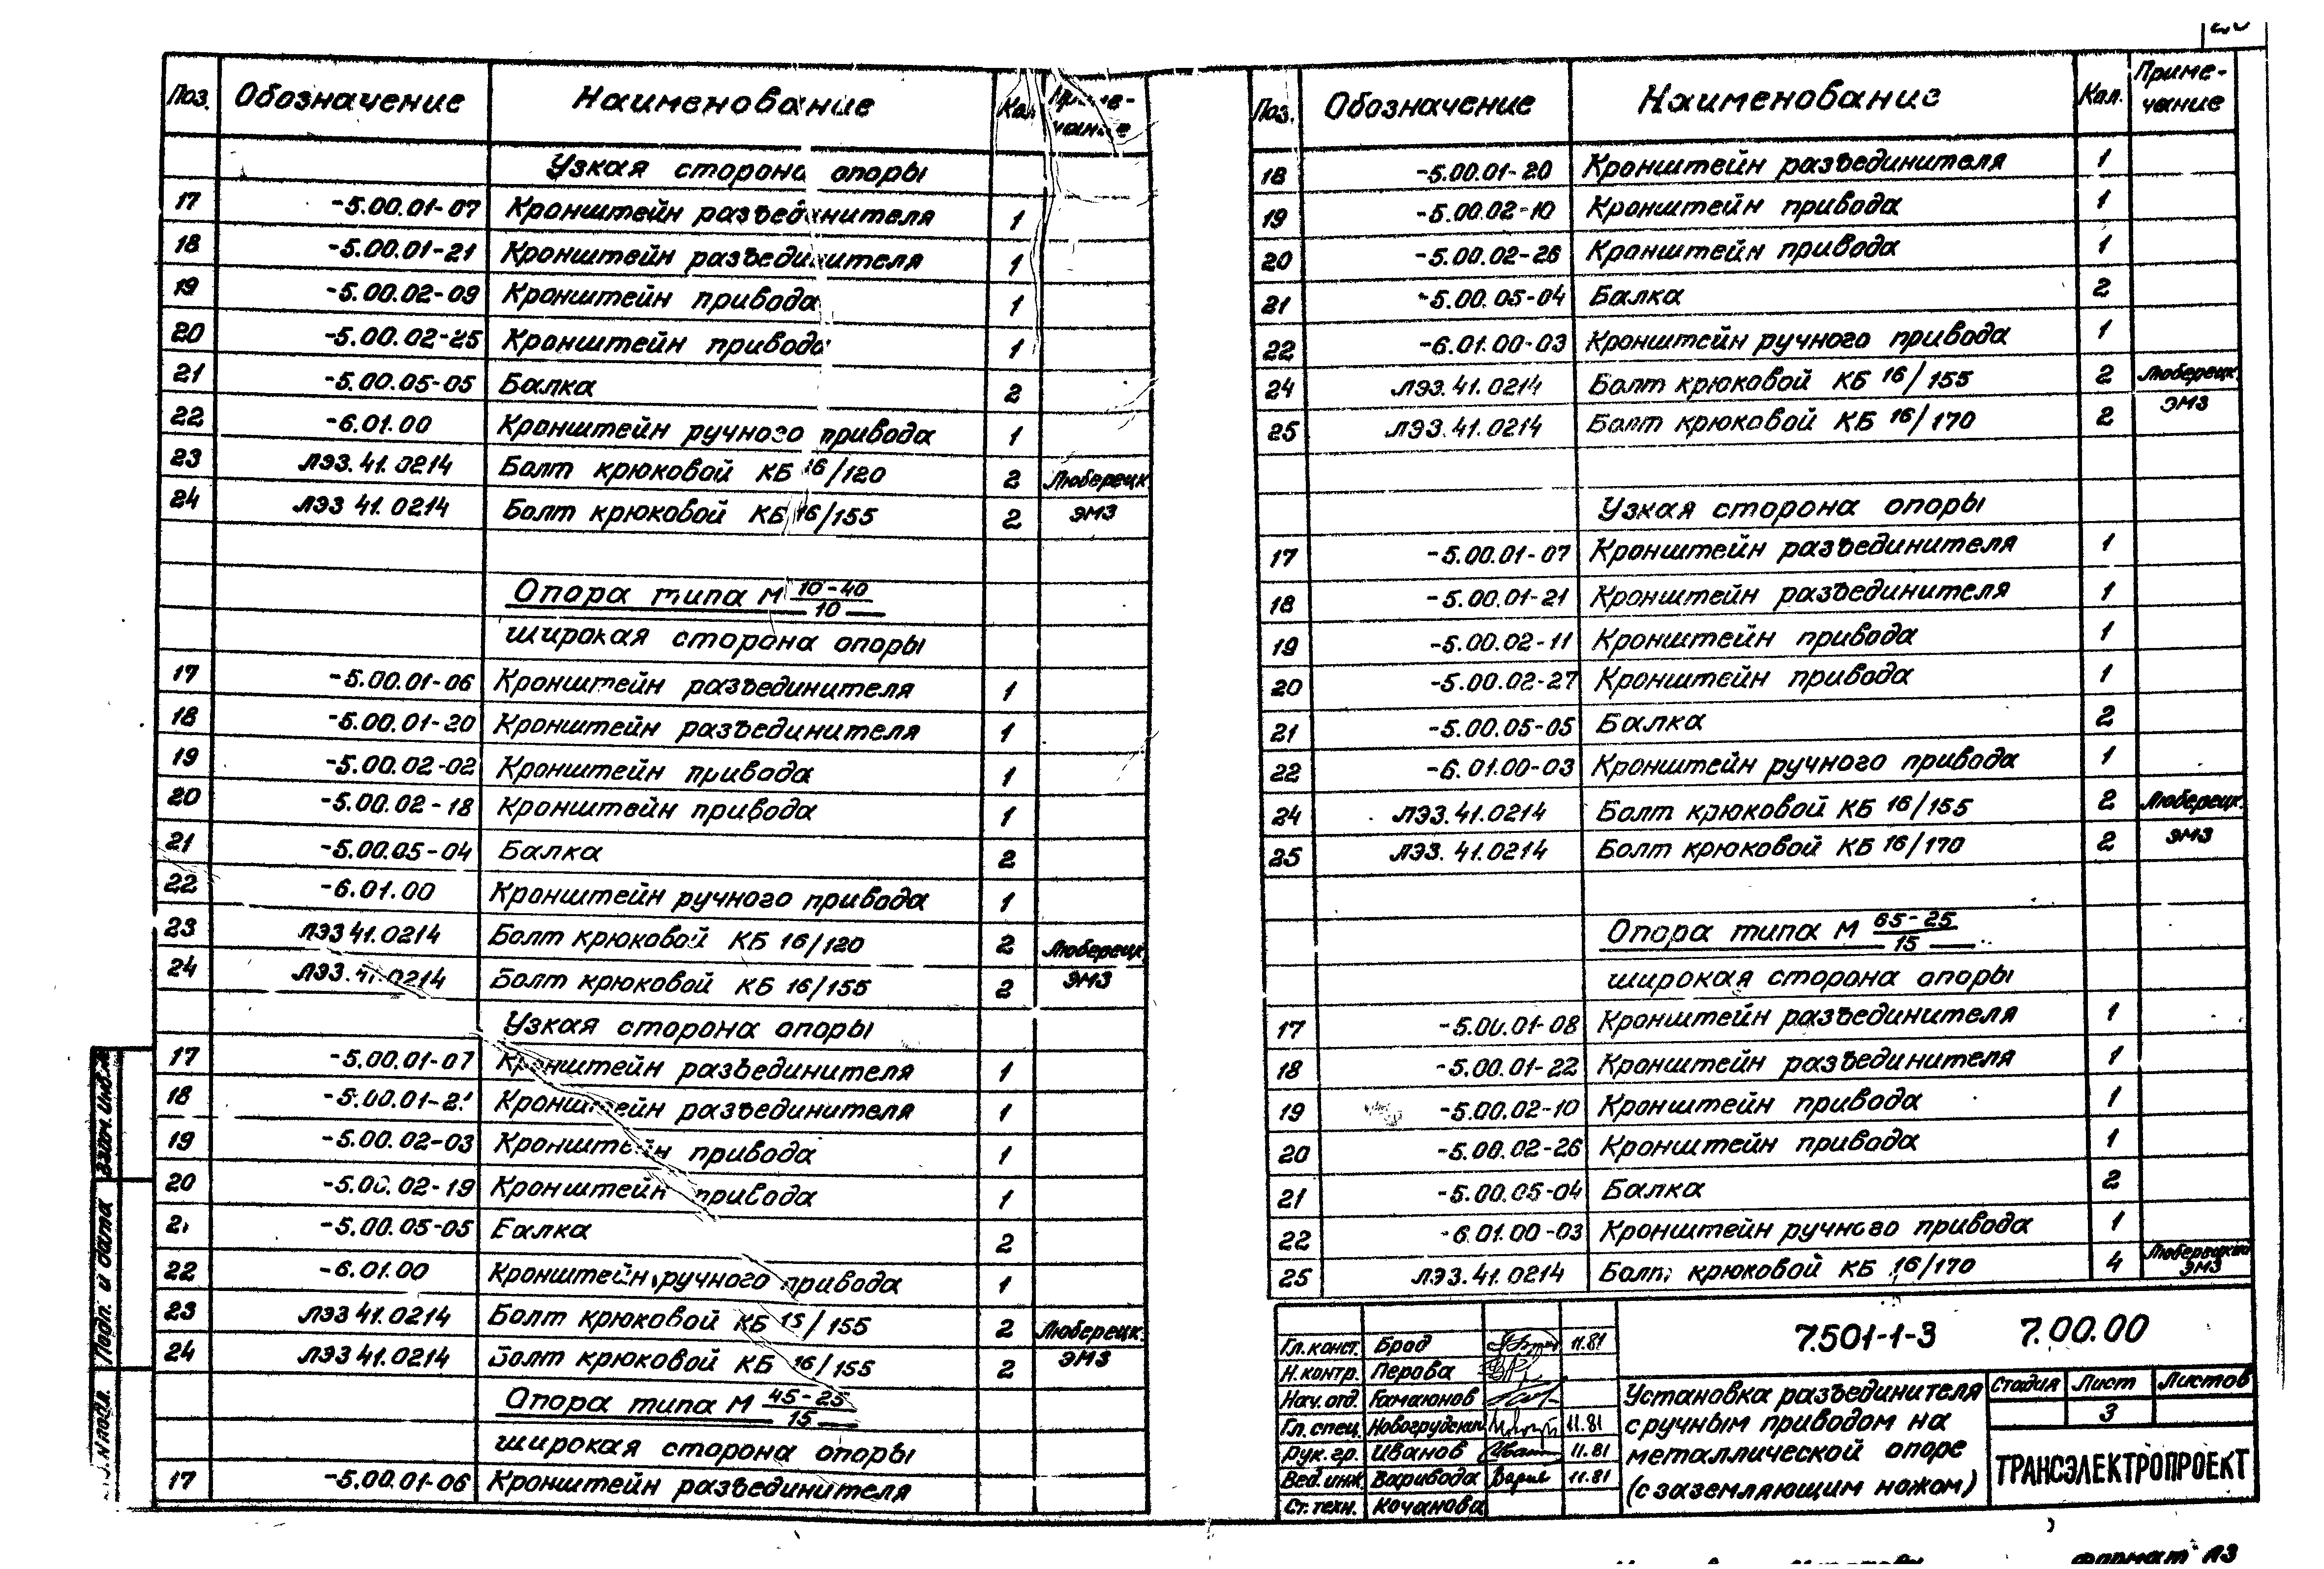 Поз. Обозначение Наименование Кол. Приме-
чание
Узкая сторона опоры
17 -5.00.01-07 Кронштейн разъединителя 1
18 -5.00.01-21 Кронштейн разъединителя 1
19 -5.00.02-09 Кронштейн привода 1
20 -5.00.02-25 Кронштейн привода 1
21 -5.00.05-05 Балка 2
22 -6.01.00 Кронштейн ручного привода 1
23 ЛЭЗ.41.0214 Болт крюковой КБ 16/120 2 Люберецк.
24 ЛЭЗ 41.0214 Болт крюковой КБ 16/155 2 ЭМЗ
Опора типа М 10-40/10
широкая сторона опоры
17 -5.00.01-06 Кронштейн разъединителя 1
18 -5.00.01-20 Кронштейн разъединителя 1
19 -5.00.02-02 Кронштейн привода 1
20 -5.00.02-18 Кронштейн привода 1
21 -5.00.05-04 Балка 2
22 -6.01.00 Кронштейн ручного привода 1
23 ЛЭЗ 41.0214 Болт крюковой КБ 16/120 2 Люберецк.
24 ЛЭЗ.41.0214 Болт крюковой КБ 16/155 2 ЭМЗ
Узкая сторона опоры
17 -5.00.01-07 Кронштейн разъединителя 1
18 -5.00.01-21 Кронштейн разъединителя 1
19 -5.00.02-03 Кронштейн привода 1
20 -5.00.02-19 Кронштейн привода 1
21 -5.00.05-05 Балка 2
22 -6.01.00 Кронштейн ручного привода 1
23 ЛЭЗ 41.0214 Болт крюковой КБ /155 2 Люберецк.
24 ЛЭЗ 41.0214 Болт крюковой КБ 16/155 2 ЭМЗ
Опора типа М 45-25/15
широкая сторона опоры
17 -5.00.01-06 Кронштейн разъединителя
Взам. Инв.№
Подп. и дата
Поз. Обозначение Наименование Кол. Приме-
чание
18 -5.00.01-20 Кронштейн разъединителя 1
19 -5.00.02-10 Кронштейн привода 1
20 -5.00.02-26 Кронштейн привода 1
21 -5.00.05-04 Балка 2
22 -6.01.00-03 Кронштейн ручного привода 1
24 ЛЭЗ.41.0214 Болт крюковой КБ 16/155 2 Люберецк.
25 ЛЭЗ.41.0214 Болт крюковой КБ 16/170 2 ЭМЗ
Узкая сторона опоры
17 -5.00.01-07 Кронштейн разъединителя 1
18 -5.00.01-21 Кронштейн разъединителя 1
19 -5.00.02-11 Кронштейн привода 1
20 -5.00.02-27 Кронштейн привода 1
21 -5.00.05-05 Балка 2
22 -6.01.00-03 Кронштейн ручного привода 1
24 ЛЭЗ.41.0214 Болт крюковой КБ 16/155 2 Люберецк.
25 ЛЭЗ.41.0214 Болт крюковой КБ 16/170 2 ЭМЗ
Опора типа М 65-25/15
широкая сторона опоры
17 -5.00.01-08 Кронштейн разъединителя 1
18 -5.00.01-22 Кронштейн разъединителя 1
19 -5.00.02-10 Кронштейн привода 1
20 -5.00.02-26 Кронштейн привода 1
21 -5.00.05-04 Балка 2
22 -6.01.00-03 Кронштейн ручного привода 1
25 ЛЭЗ.41.0214 Болт крюковой КБ 16/170 4 Люберецкий
ЭМЗ
Гл.конст. Брод 11.81
Н.контр. Перова
Нач.отд. Гамаюнов
Гл.спец. Новогрудский 11.81
Рук.гр. Иванов 11.81
Вед.инж. Варивода 11.81
Ст.техн. Кочанова
7.501-1-3 7.00.00
Установка разъединителя
с ручным приводом на
металлической опоре
(с заземляющим ножом)
Стадия Лист Листов
3
ТРАНСЭЛЕКТРОПРОЕКТ
Формат А3